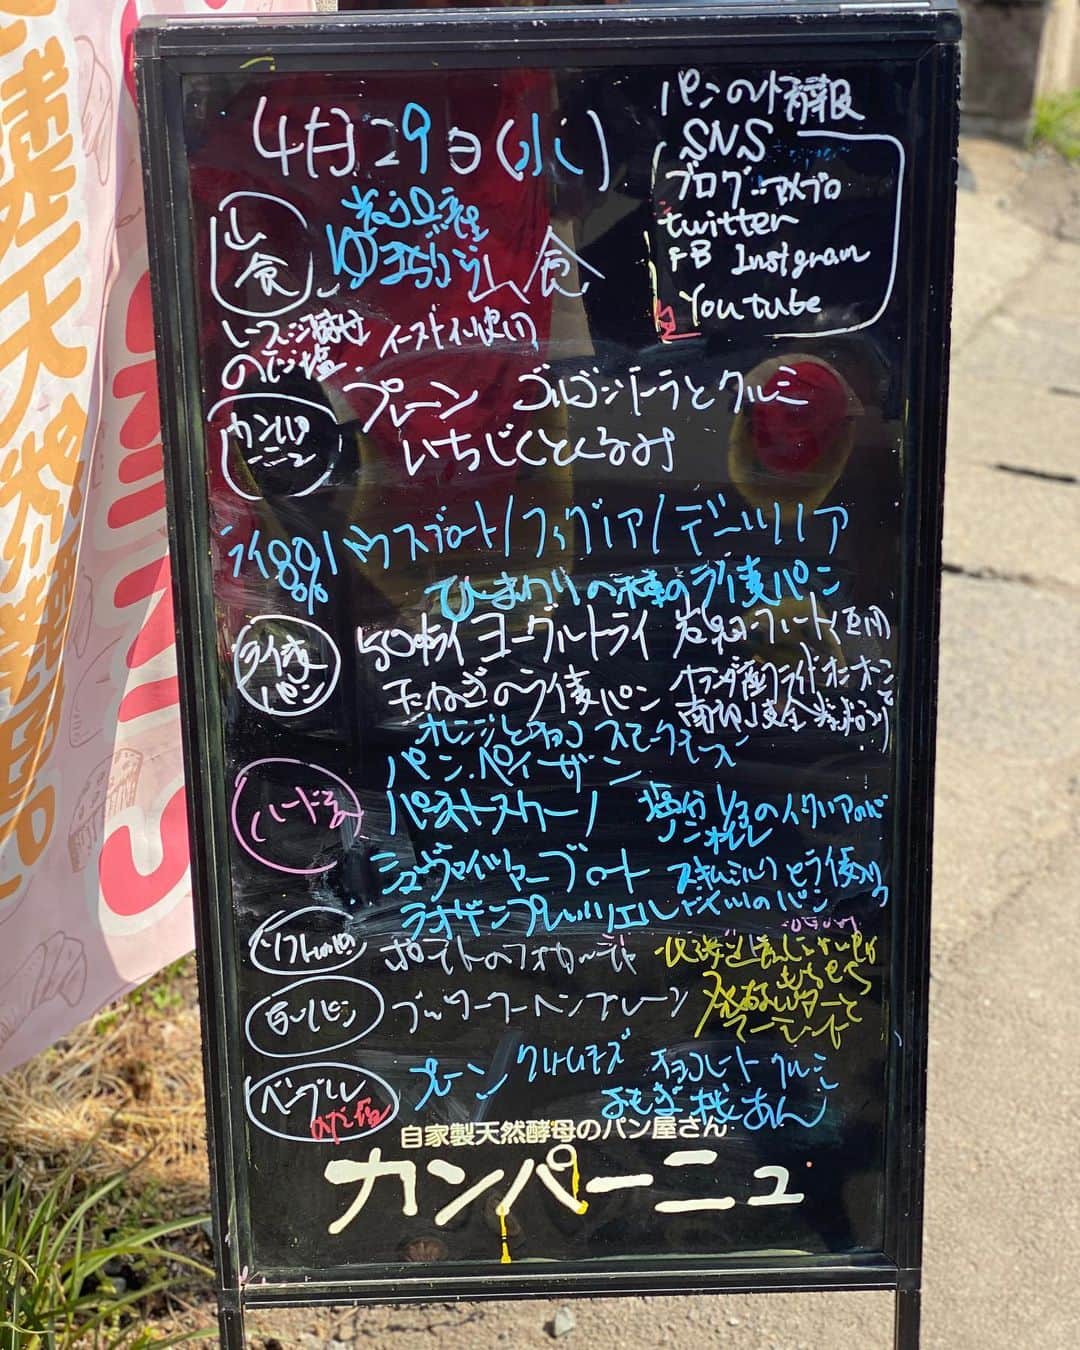 4月29日(水)
パンの情報
SNS
ブログ アメブロ
twitter
FB Instgram
Youtube
山食
ゆきちから山食
レーズン酵母 イースト不使用
のだ塩
カンパーニュ
プレーン ゴルゴンゾーラとクルミ
いちじくとくるみ
ライ80% ハウスブロート/フィグノア/デーツノア
ひまわりの種のライ麦パン
ライ麦パン
50%ライ ヨーグルトライ 岩泉ヨーグルト使用
玉ねぎのライ麦パン オランダ産フライドオニオン
南部小麦全粒粉
オレンジとチョコ
パン・ペイザン
ハード系
パネトスカーノ 塩分1/3のイタリアのパン
シュヴァイツァーブロート スキムミルクとライ麦入り
ラオゲンプレッツェル ドイツのパン
ソフト
ポテトのフォカッチャ
もちもち
白いパン
プレーン
発酵バターと
ベーグル
のだ塩
プレーン クリームチーズ チョコレート クルミ
よもぎ あん
自家製天然酵母のパン屋さん
カンパーニュ